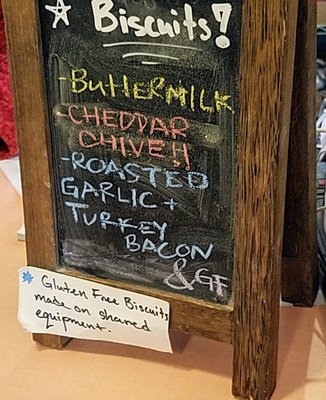 Biscuits!
-BUTTERMILK
-CHEDDAR
CHIVE!!
-ROASTED
GARLIC +
TURKEY
BACON
& GF
* Gluten Free Biscuits
made on shared
equipment.